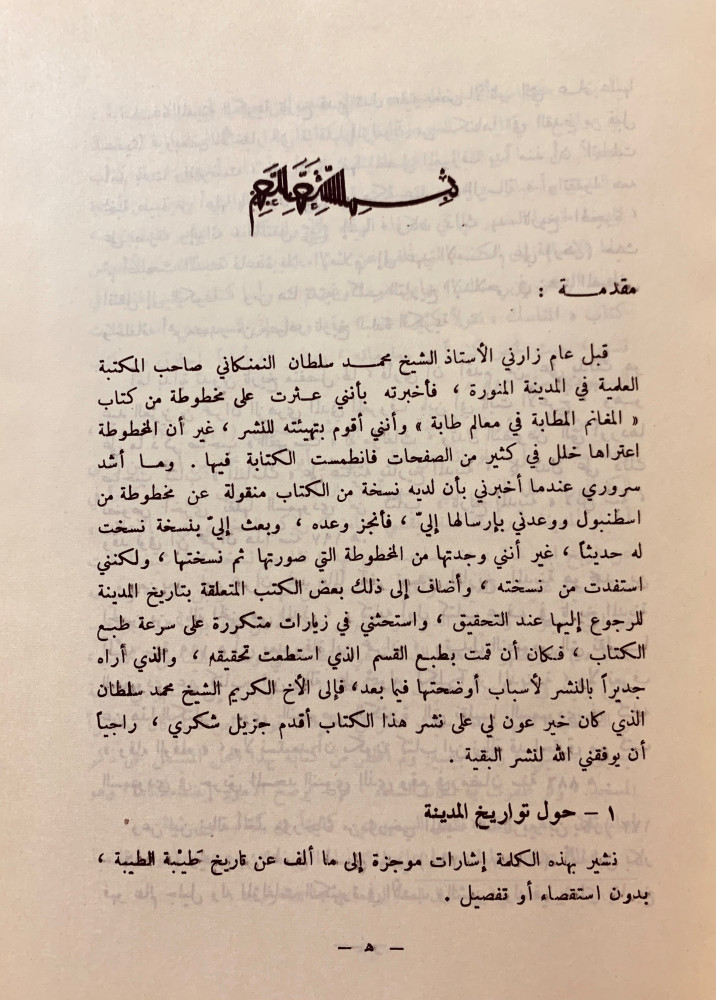 بسم الله الرحمن الرحيم
مقدمـــة :
قبل عام زارني الأستاذ الشيخ محمـــد سلطان النمنكاني صاحب المكتبة
العلمية في المدينة المنورة ، فأخبرته بأنني عـــثرت على مخطوطة من كتاب
« المغانم المطابة في معالم طابة » وأنني أقوم بتهيئته للنشر ، غير أن المخطوطة
اعتراها خلل في كثير من الصفحات فانطمست الكتابة فيها . ومـــا أشد
سروري عندما أخبرني بأن لديه نسخة من الكتاب منقولة عن مخطوطة من
اسطنبول ووعدني بإرسالها إليّ ، فأنجز وعده ، وبعث إليّ بنسخة نسخت
له حديثاً ، غير أنني وجدتها من المخطوطة التي صورتها ثم نسختها ، ولكنني
استفدت من نسخته ، وأضاف إلى ذلك بعض الكتب المتعلقة بتاريخ المدينة
للرجوع إليها عند التحقيق ، واستحثني في زيارات متكررة على سرعة طبع
الكتاب ، فكان أن قمت بطبع القسم الذي استطعت تحقيقه ، والذي أراه
جديراً بالنشر لأسباب أوضحتها فيما بعد، فإلى الأخ الكريم الشيخ محمد سلطان
الذي كان خير عون لي على نشر هذا الكتاب أقدم جزيل شكري ، راجياً
أن يوفقني الله لنشر البقية .
١ – حول تواريخ المدينة
نشير بهذه الكلمة إشارات موجزة إلى ما ألف عن تاريخ طَيْبة الطيبة ،
بدون استقصاء أو تفصيل .
— ه —